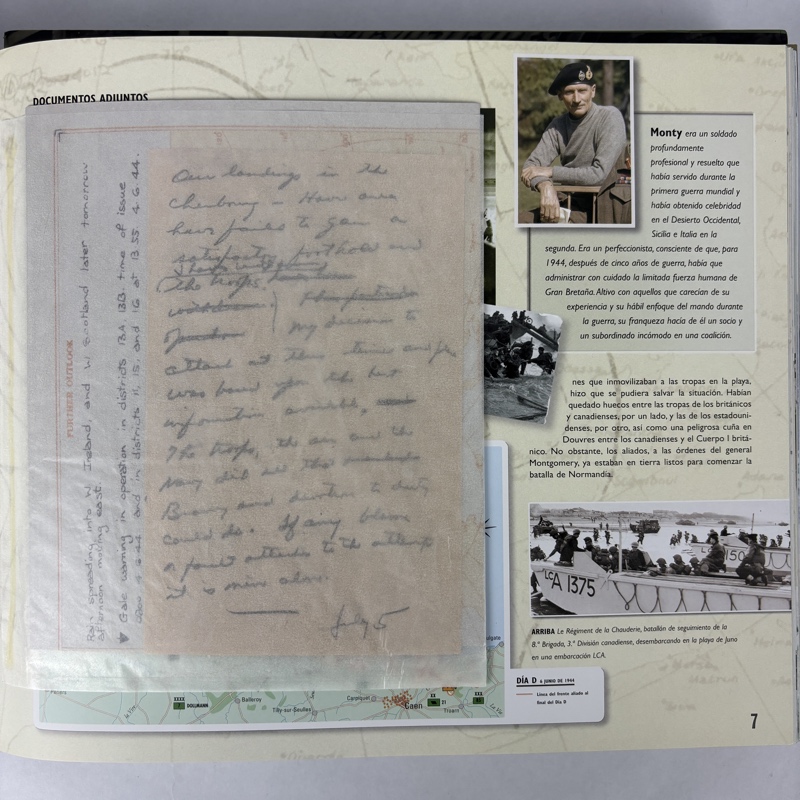 DOCUMENTOS ADJUNTOS
Rain spreading into W Ireland, and W Scotland later tomorrow
afternoon moving east.
Gale warning in operation in districts 13A 13B. time of issue
4 6 44 and in districts 11, 15, and 16 at 13 55 4. 6. 44.
FURTHER OUTLOOK
Our landings in the
Cherbourg – Havre area
have failed to gain a
satisfactory foothold and
the troops
withdrawn.
My decision to
attack at this time and place
was based upon the best
information available,
The troops, the air and the
Navy did all that
Bravery and devotion to duty
could do. If any blame
or fault attaches to the attempt
it is mine alone.
July 5
Monty era un soldado
profundamente
profesional y resuelto que
había servido durante la
primera guerra mundial y
había obtenido celebridad
en el Desierto Occidental,
Sicilia e Italia en la
segunda. Era un perfeccionista, consciente de que, para
1944, después de cinco años de guerra, había que
administrar con cuidado la limitada fuerza humana de
Gran Bretaña. Altivo con aquellos que carecían de su
experiencia y su hábil enfoque del mando durante
la guerra, su franqueza hacia de él un socio y
un subordinado incómodo en una coalición.
nes que inmovilizaban a las tropas en la playa,
hizo que se pudiera salvar la situación. Habían
quedado huecos entre las tropas de los británicos
y canadienses, por un lado, y las de los estadouni-
denses, por otro, así como una peligrosa cuña en
Douvres entre los canadienses y el Cuerpo I britá-
nico. No obstante, los aliados, a las órdenes del general
Montgomery, ya estaban en tierra listos para comenzar la
batalla de Normandía.
LCA 1375
LCA 150
ARRIBA Le Régiment de la Chauderie, batallón de seguimiento de la
8.ª Brigada, 3.ª División canadiense, desembarcando en la playa de Juno
en una embarcación LCA.
DÍA D 6 JUNIO DE 1944
Línea del frente aliado al
final del Día D
XXXX
7 DOLLMANN
Balleroy
Tilly-sur-Seulles
Carpiquet
Caen
21
Troarn
7